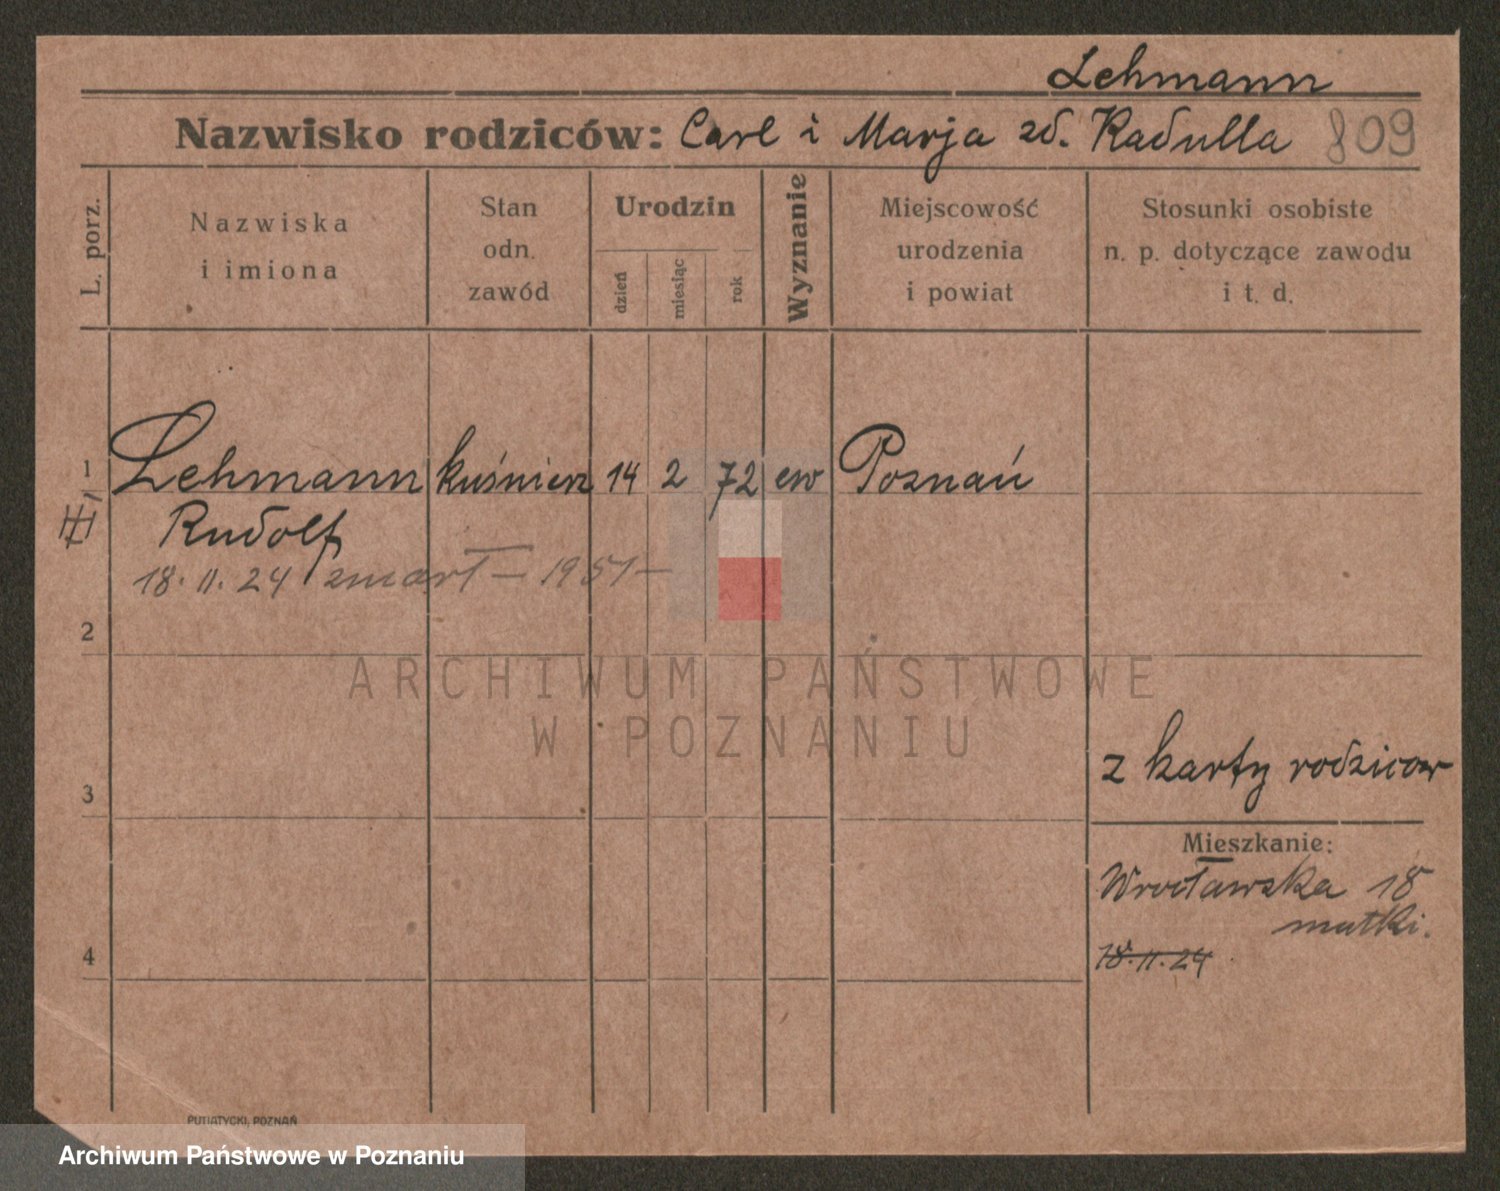 Lehmann
Nazwisko rodziców: Carl i Marja zd. Kadulla 809
L. porz.
Nazwiska
i imiona
Stan
odn.
zawód
Urodzin
dzień
miesiąc
rok
Wyznanie
Miejscowość
urodzenia
i powiat
Stosunki osobiste
n. p. dotyczące zawodu
i t. d.
1 Lehmann kuśnierz 14 2 72 ew Poznań
Rudolf
18. 11. 24 zmarł — 1951 —
2
ARCHIWUM PAŃSTWOWE
W POZNANIU
z karty rodziców
3
Mieszkanie:
Wrocławska 18
matki.
18. 11. 24
4
PUTIATYCKI, POZNAŃ
Archiwum Państwowe w Poznaniu